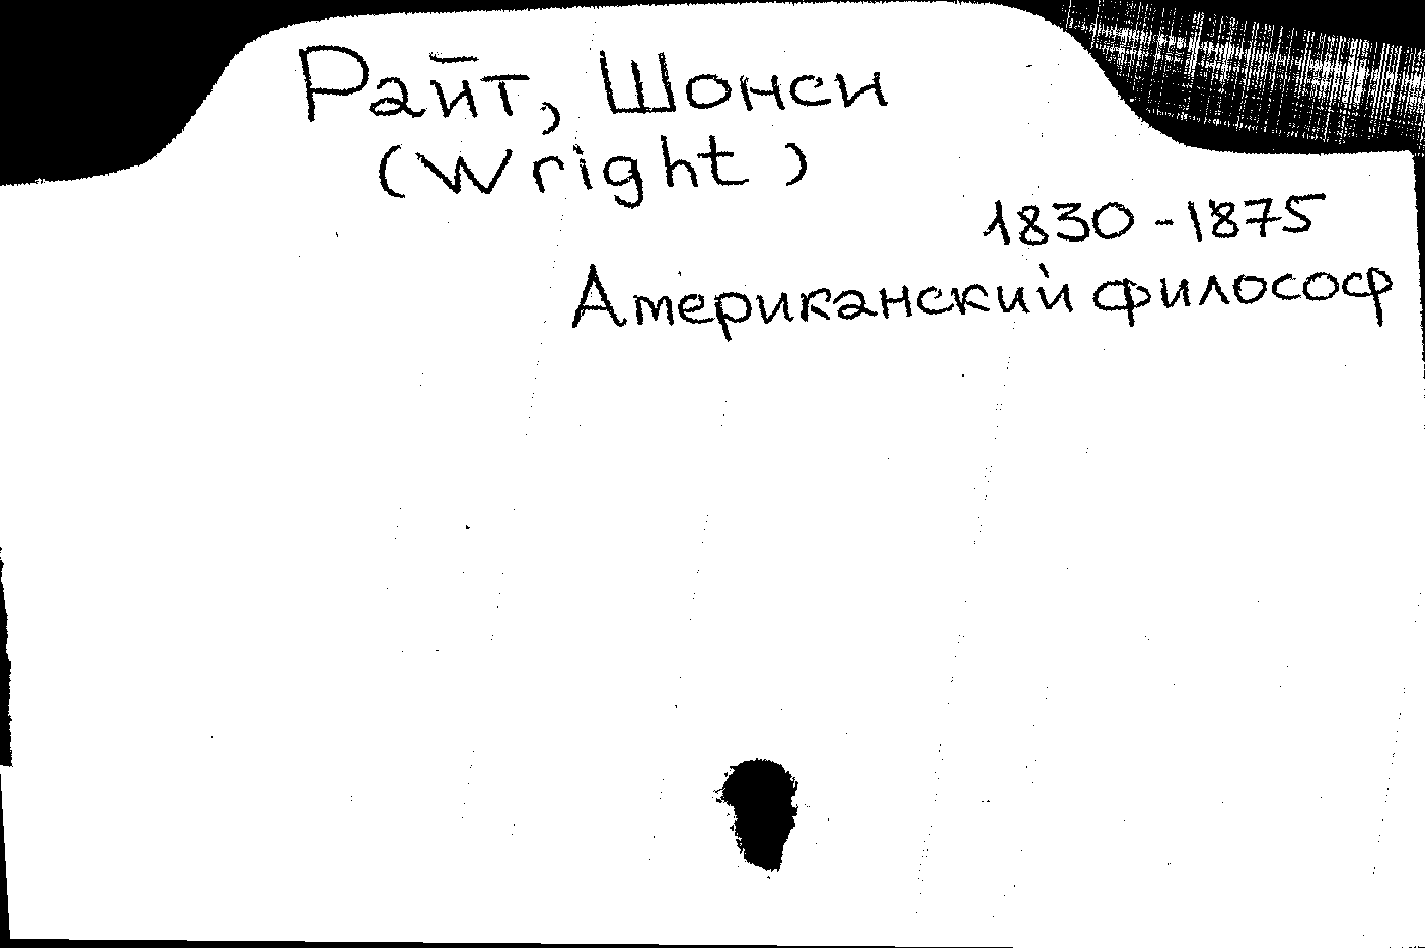 Райт, Шонси
(Wright)
1830-1875
Американский философ